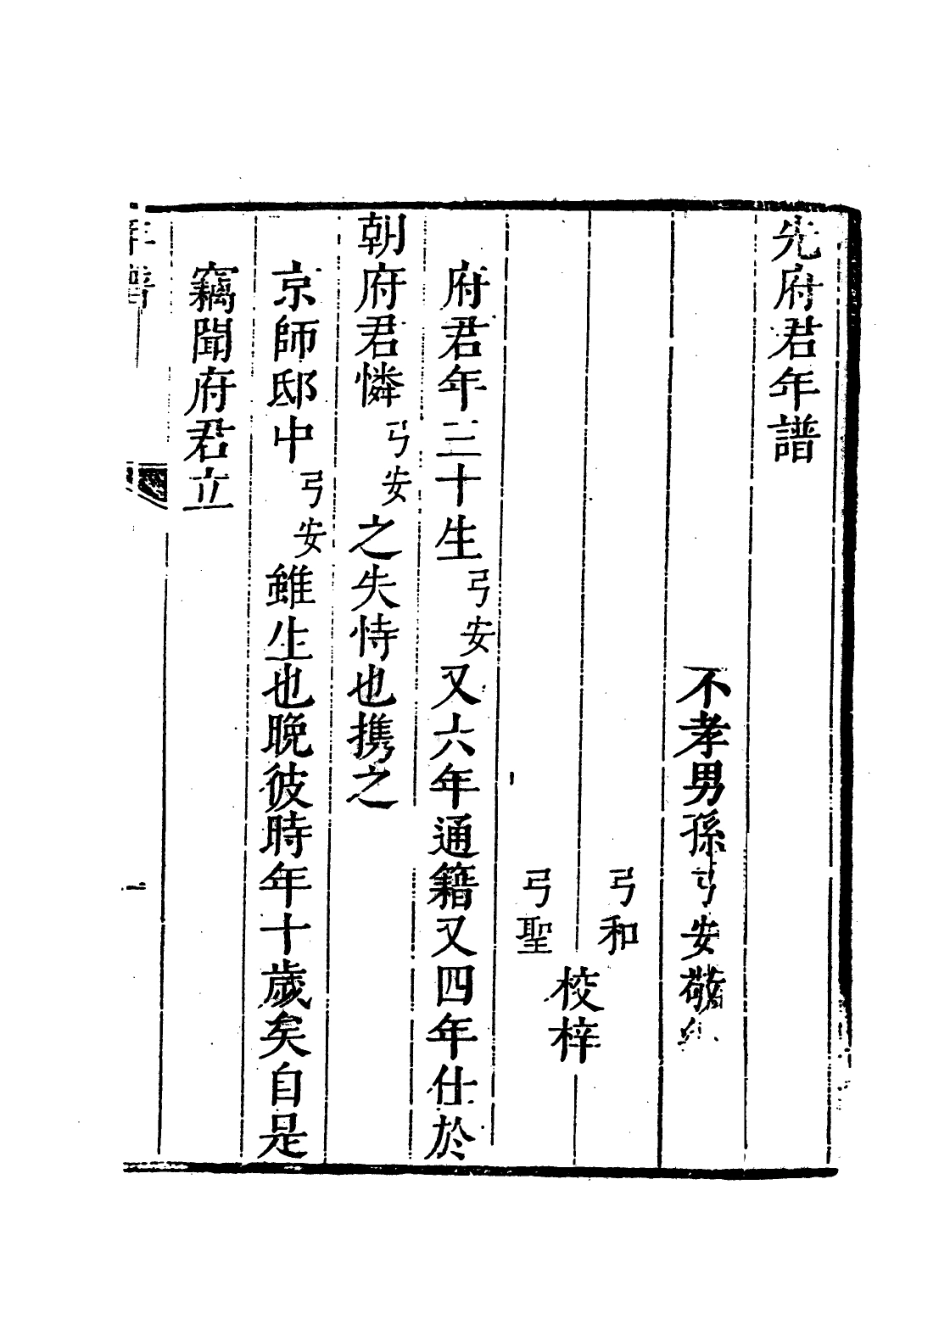 先府君年譜
不孝男孫弓安敬
弓和
弓聖
校梓
府君年三十生弓安又六年通籍又四年仕於
朝府君憐弓安之失恃也携之
京師邸中弓安雖生也晚彼時年十歲矣自是
竊聞府君立
年譜
一